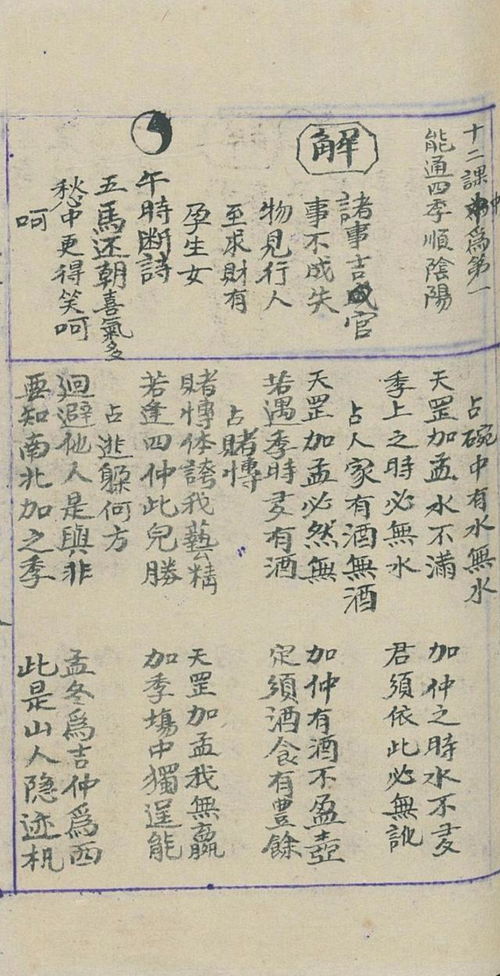 十二課中為第一
能通四季順陰陽
解
諸事吉成官
事不成失
物見行人
至求財有
孕生女
午時断詩
五馬还朝喜氣多
愁中更得笑呵
呵
占碗中有水無水
天罡加孟水不滿 加仲之時水不多
季上之時必無水 君須依此必無訛
占人家有酒無酒
天罡加孟必然無 加仲有酒不盈壺
若遇季時多有酒 定須酒食有豊餘
占賭愽
賭愽休誇我藝精 天罡加孟我無贏
若逢四仲此兒勝 加季塲中獨逞能
占迯躲何方
廻避他人是與非 孟冬為吉仲為西
要知南北加之季 此是山人隐迹机